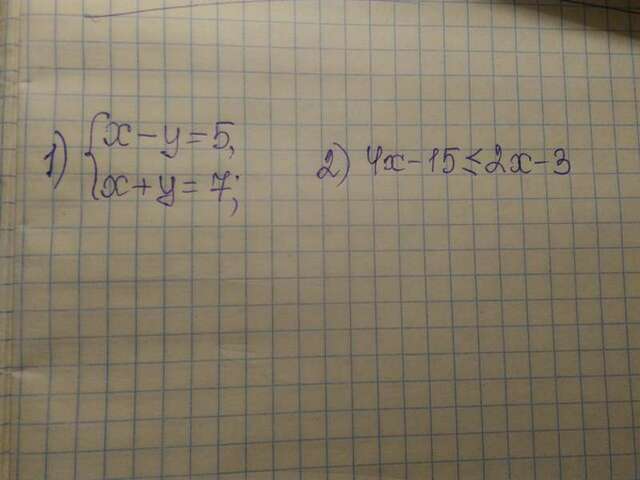 1) { x - y = 5,
x + y = 7;
2) 4x - 15 ≤ 2x - 3